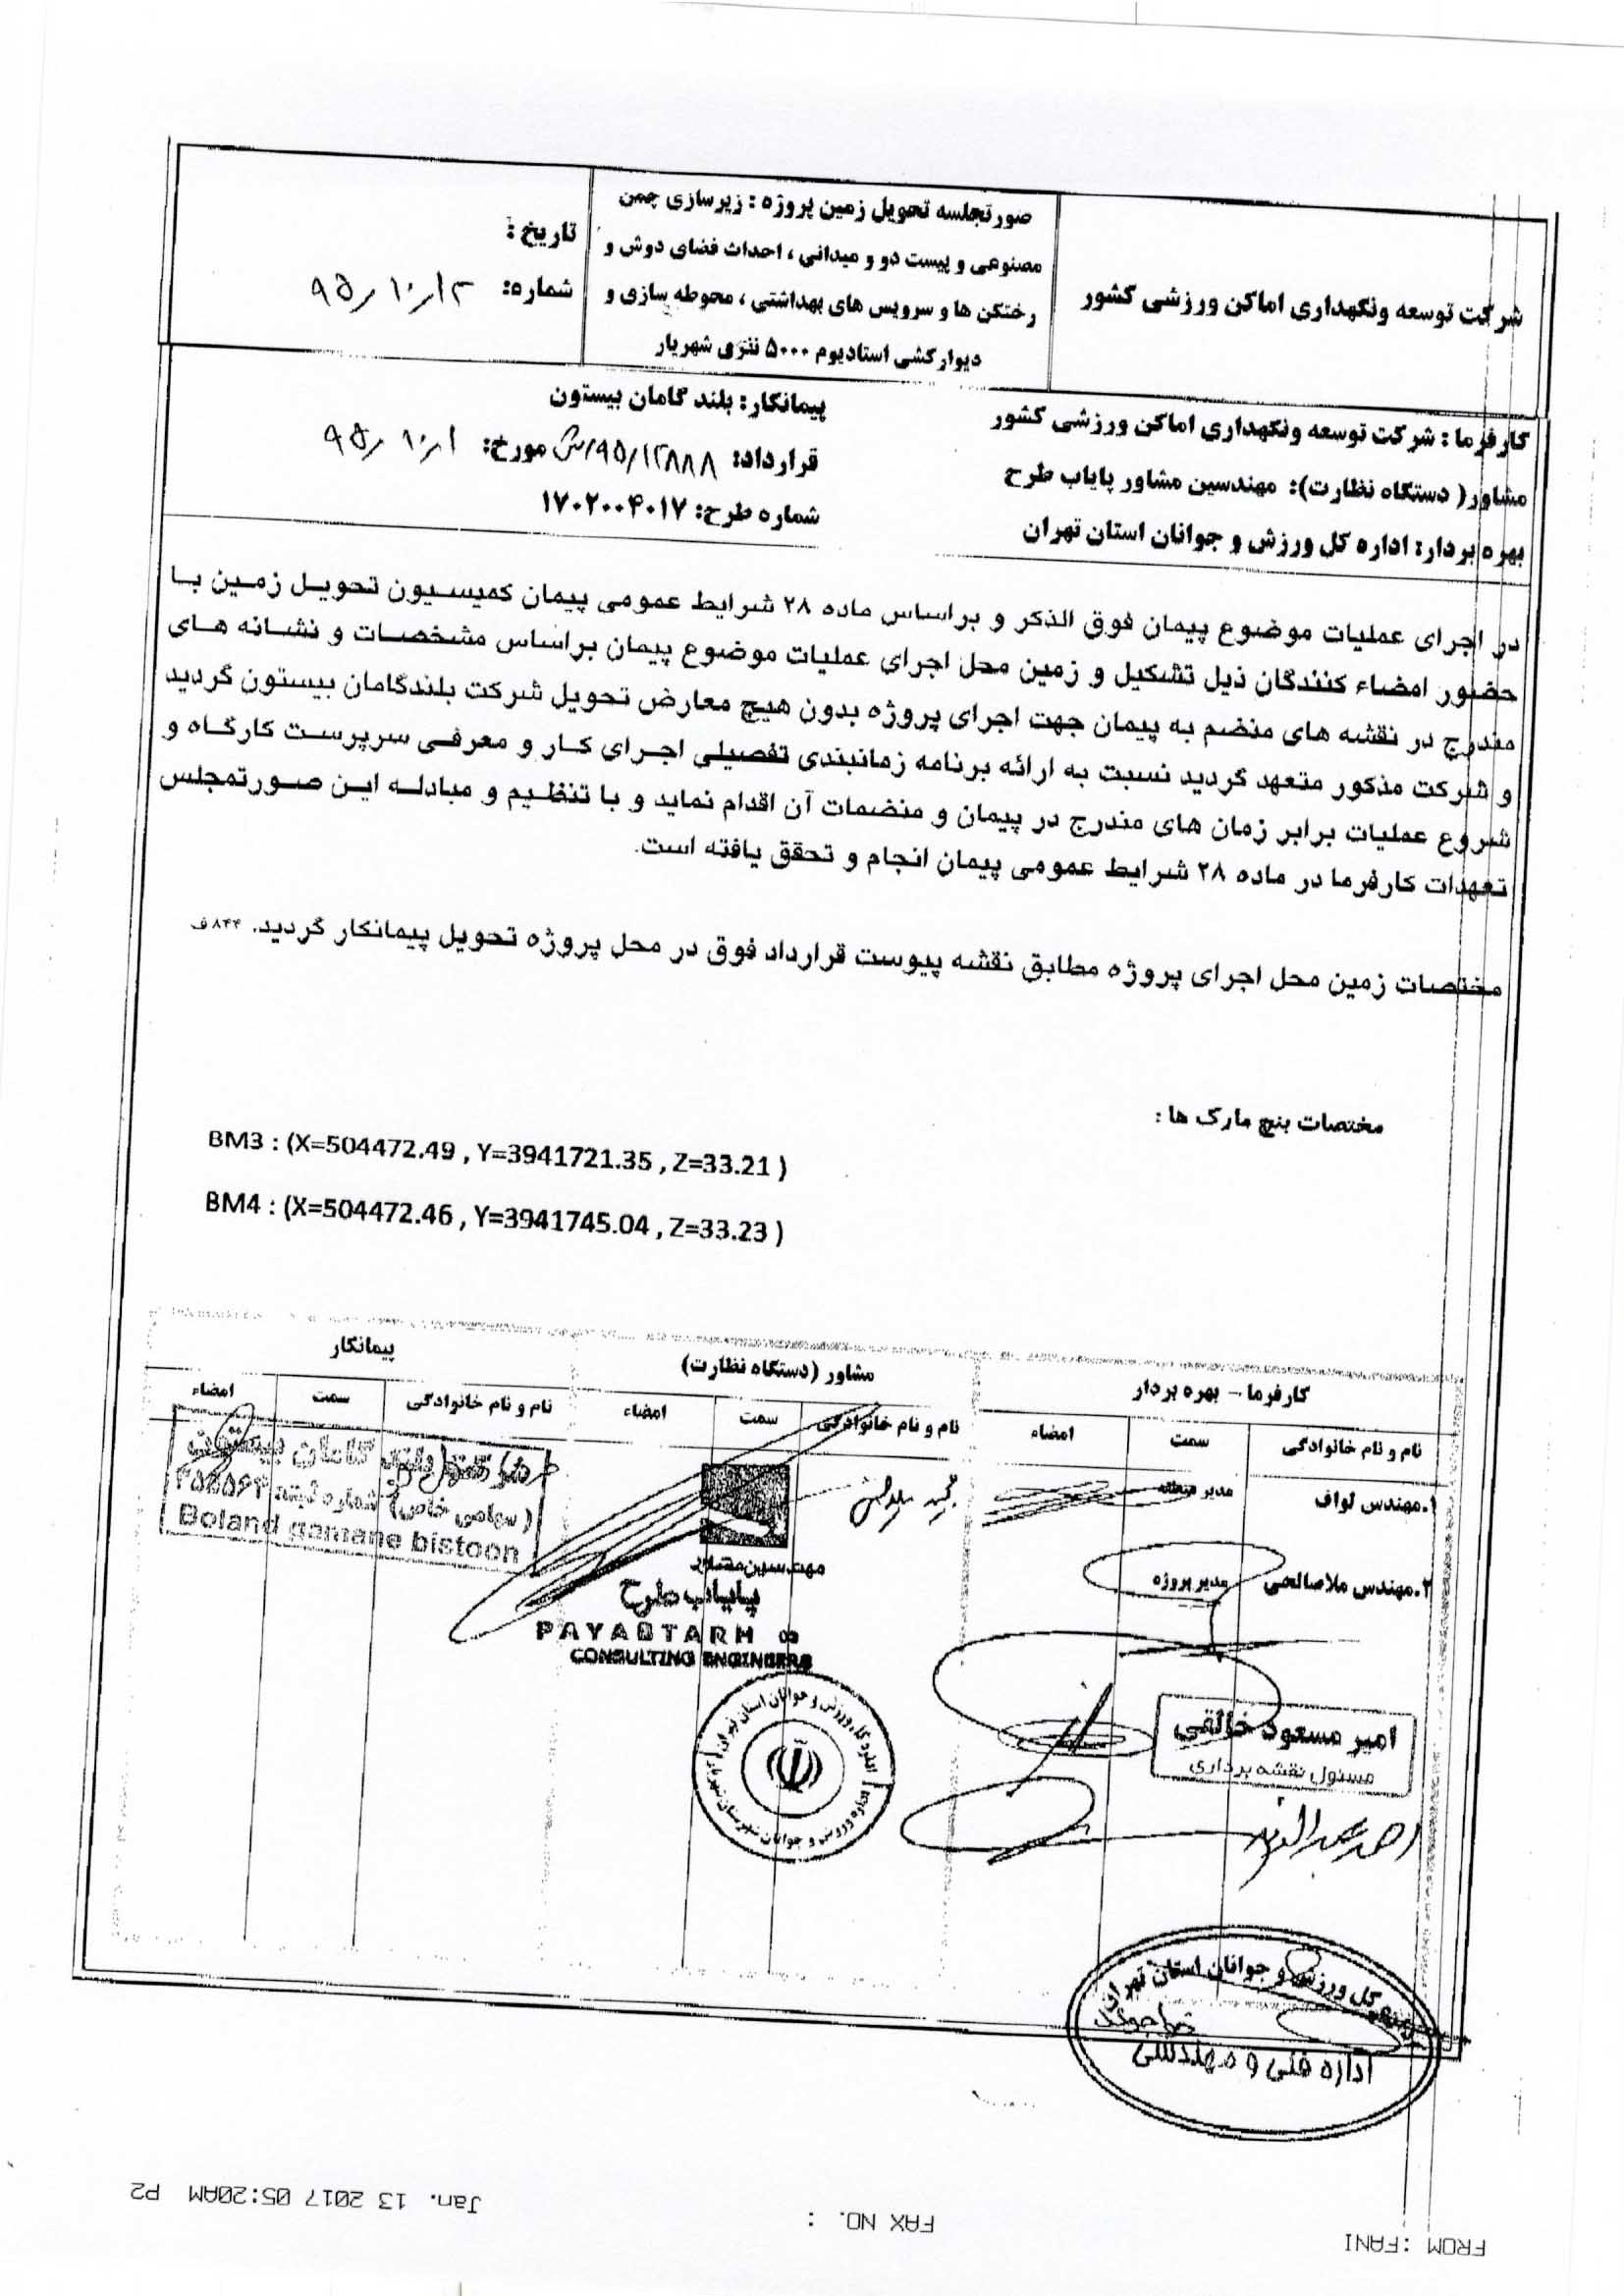 شرکت توسعه ونگهداری اماکن ورزشی کشور
صورتجلسه تحویل زمین پروژه : زیرسازی چمن
مصنوعی و پیست دو و میدانی ، احداث فضای دوش و
رختکن ها و سرویس های بهداشتی ، محوطه سازی و
دیوارکشی استادیوم ۵۰۰۰ نفری شهریار
تاریخ :
شماره: ۹۵٫۱۰٫۱۲
کارفرما : شرکت توسعه ونگهداری اماکن ورزشی کشور
مشاور( دستگاه نظارت): مهندسین مشاور پایاب طرح
بهره بردار: اداره کل ورزش و جوانان استان تهران
پیمانکار: بلند گامان بیستون
قرارداد: ۹۵/۱۲۸۸۸/ش مورخ: ۹۵٫۱۰٫۱
شماره طرح: ۱۷۰۲۰۰۴۰۱۷
در اجرای عملیات موضوع پیمان فوق الذکر و براساس ماده ۲۸ شرایط عمومی پیمان کمیسیون تحویل زمین با
حضور امضاء کنندگان ذیل تشکیل و زمین محل اجرای عملیات موضوع پیمان براساس مشخصات و نشانه های
مندرج در نقشه های منضم به پیمان جهت اجرای پروژه بدون هیچ معارض تحویل شرکت بلندگامان بیستون گردید
و شرکت مذکور متعهد گردید نسبت به ارائه برنامه زمانبندی تفصیلی اجرای کار و معرفی سرپرست کارگاه و
شروع عملیات برابر زمان های مندرج در پیمان و منضمات آن اقدام نماید و با تنظیم و مبادله این صورتمجلس
تعهدات کارفرما در ماده ۲۸ شرایط عمومی پیمان انجام و تحقق یافته است.
مختصات زمین محل اجرای پروژه مطابق نقشه پیوست قرارداد فوق در محل پروژه تحویل پیمانکار گردید. ۸۴۴ف
مختصات بنچ مارک ها :
BM3 : (X=504472.49 , Y=3941721.35 , Z=33.21 )
BM4 : (X=504472.46 , Y=3941745.04 , Z=33.23 )
کارفرما – بهره بردار
مشاور (دستگاه نظارت)
پیمانکار
نام و نام خانوادگی سمت امضاء
نام و نام خانوادگی سمت امضاء
نام و نام خانوادگی سمت امضاء
۱.مهندس لواف مدیر منطقه
۲.مهندس ملاصالحی مدیر پروژه
شرکت بلند گامان بیستون
(سهامی خاص) شماره ثبت:
Boland gamane bistoon
مهندسین مشاور
پایاب طرح
PAYABTARH co
CONSULTING ENGINEERS
امیر مسعود خالقی
مسئول نقشه برداری
اداره کل ورزش و جوانان استان تهران
اداره ورزش و جوانان شهرستان
اداره کل ورزش و جوانان استان تهران
اداره فنی و مهندسی
FROM :FANI
FAX NO. :
Jan. 13 2017 05:20AM P2